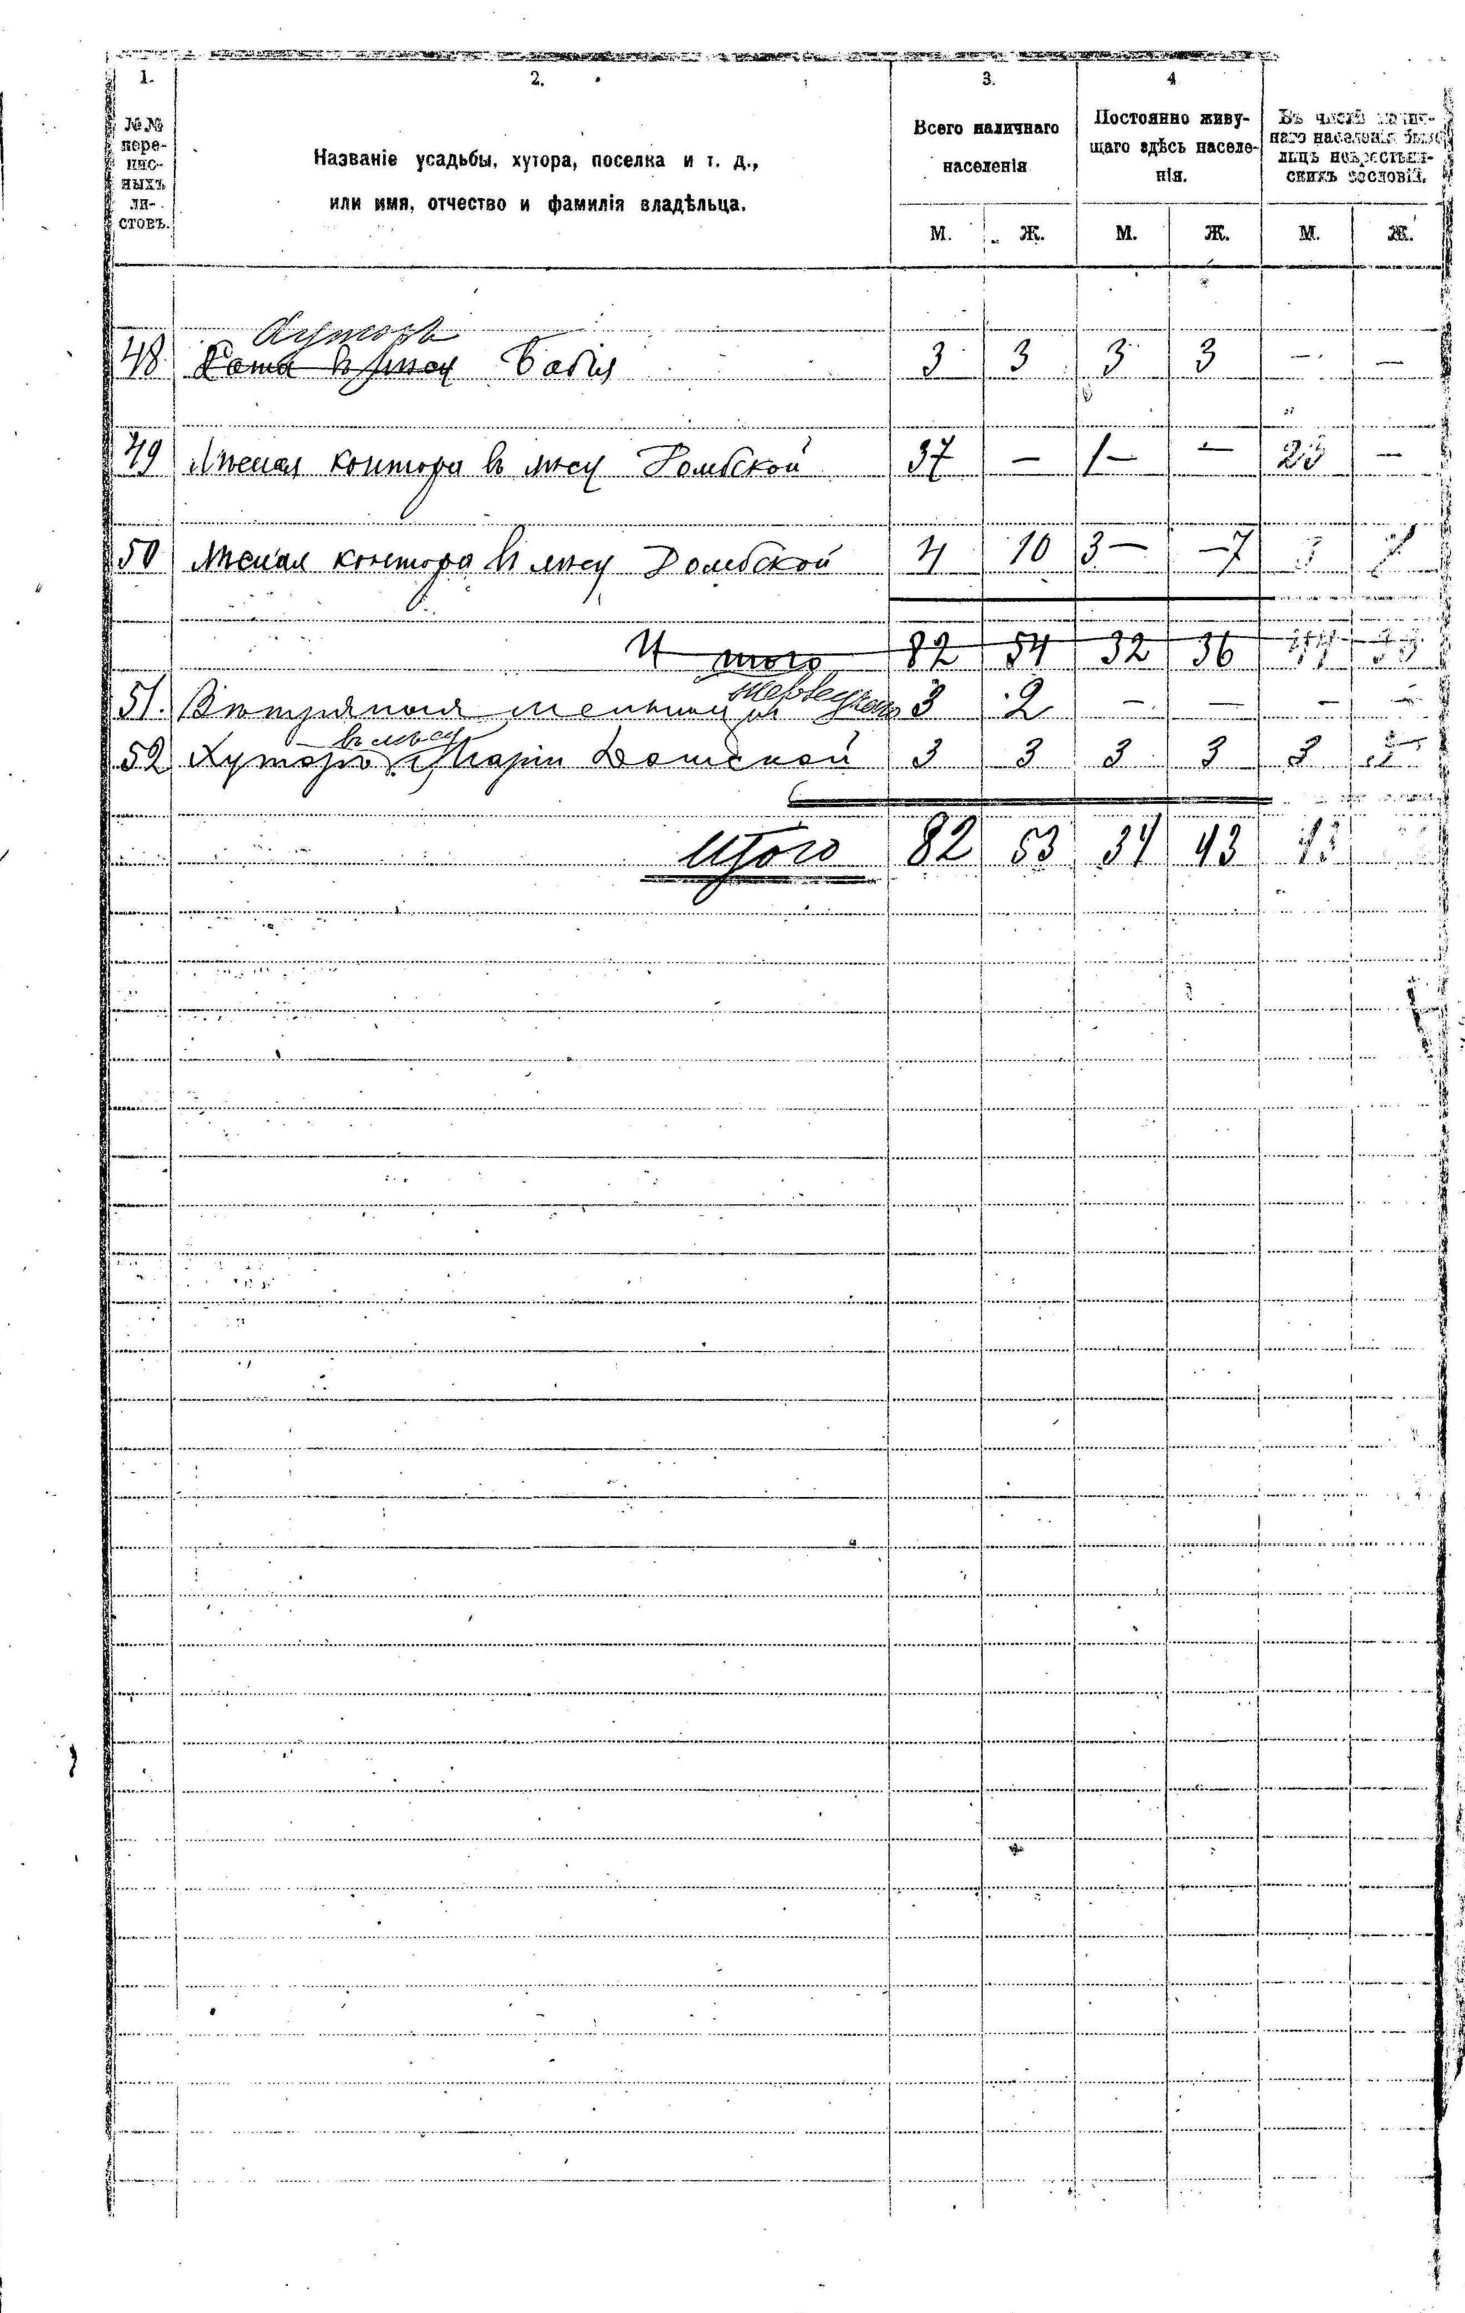 1. 2. 3. 4
№№ перепис-ныхъ ли-стовъ.
Названіе усадьбы, хутора, поселка и т. д.,
или имя, отчество и фамилія владѣльца.
Всего наличнаго
населенія
Постоянно живу-
щаго здѣсь населе-
нія.
Въ числѣ налич-
наго населенія было
лицъ некрестьян-
скихъ сословій.
М. Ж. М. Ж. М. Ж.
Хуторъ
48 Хата въ лѣсу Бабія 3 3 3 3 — —
49 Лѣсная контора въ лѣсу Домбской 37 — 1 — — 23 —
50 Лѣсная контора въ лѣсу Домбской 4 10 3 — — 7 3 7
Итого 82 54 32 36 44
51. Вѣтряная мельница 3 2 — — — —
въ лѣсу
52 Хуторъ Маріи Домской 3 3 3 3 3
Итого 82 53 34 43 43